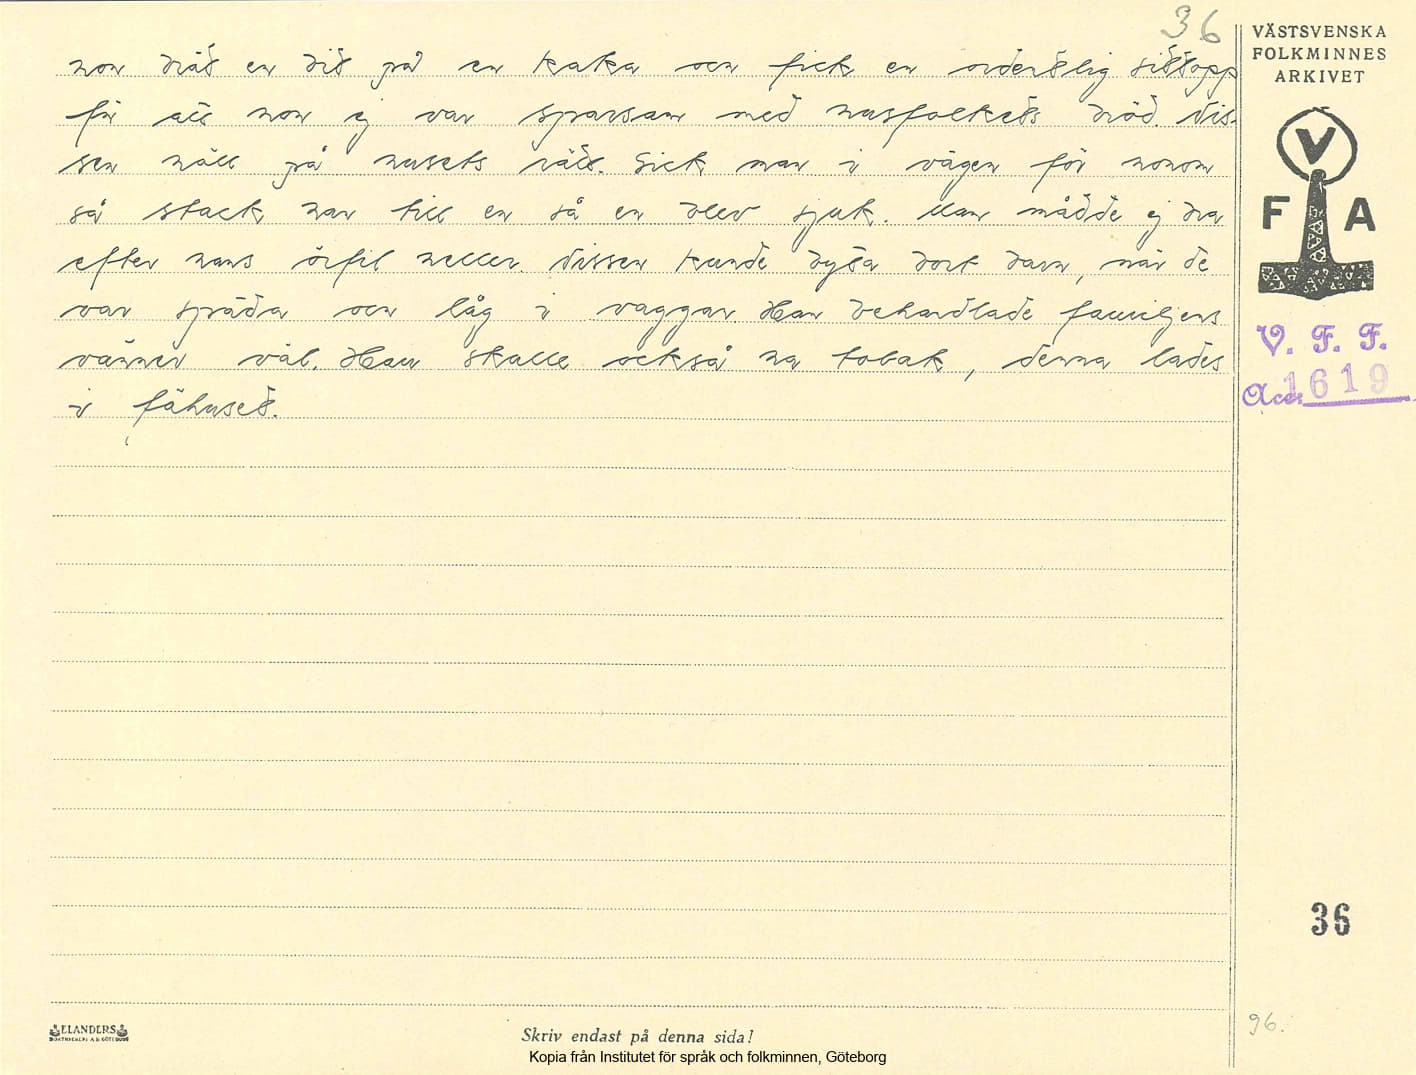 36
VÄSTSVENSKA
FOLKMINNES
ARKIVET
hon bröt en bit på en kaka och fick en ordentlig
för att hon ej var sparsam med husfolkets bröd. Nis-
sen höll på husets rätt. Gick man i vägen för honom
så stack han till en så en blev sjuk. Man måtte ej ha
efter hans örfil heller. Nissen kunde byta bort barn, när de
var späda och låg i vaggan. Han behandlade familjens
vänner väl. Han skulle också ha tobak, denna lades
i fähuset.
V
F A
V. F. F.
Acc. 1619
36
96.
ELANDERS
BOKTRYCKERI A.B. GÖTEBORG
Skriv endast på denna sida!
Kopia från Institutet för språk och folkminnen, Göteborg